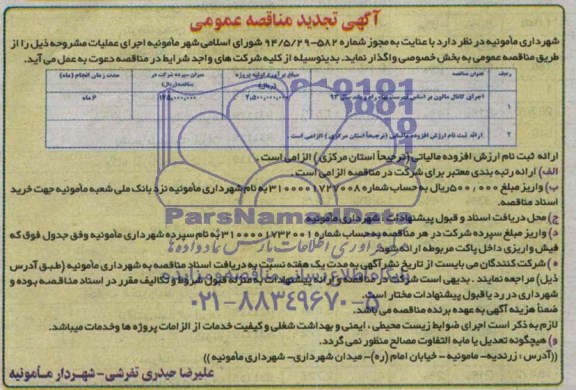 آگهی تجدید مناقصه عمومی
شهرداری مأمونیه در نظر دارد با عنایت به مجوز شماره ۵۸۲-۹۴/۵/۲۹ شورای اسلامی شهر مأمونیه اجرای عملیات مشروحه ذیل را از
طریق مناقصه عمومی به بخش خصوصی واگذار نماید. بدینوسیله از کلیه شرکت های واجد شرایط در مناقصه دعوت به عمل می آید.
ردیف عنوان مناقصه مبلغ برآورد اولیه پروژه (ریال) میزان سپرده شرکت در مناقصه (ریال) مدت زمان انجام (ماه)
۱ اجرای کانال سالون بر اساس فهرست بهاء راه و باند سال ۹۳ ۲،۵۰۰،۰۰۰،۰۰۰ ۱۲۵،۰۰۰،۰۰۰ ۶ ماه
۲ ارائه ثبت نام ارزش افزوده مالیاتی (ترجیحاً استان مرکزی) الزامی است.
ارائه ثبت نام ارزش افزوده مالیاتی (ترجیحاً استان مرکزی) الزامی است.
الف) ارائه رتبه بندی معتبر برای شرکت در مناقصه الزامی است.
ب) واریز مبلغ ۵۰۰،۰۰۰ریال به حساب شماره ۳۱۰۰۰۰۱۷۲۷۰۰۸ به نام شهرداری مأمونیه نزد بانک ملی شعبه مأمونیه جهت خرید
اسناد مناقصه.
ج) محل دریافت اسناد و قبول پیشنهادات: شهرداری مأمونیه
د) واریز مبلغ سپرده شرکت در هر مناقصه به حساب شماره ۳۱۰۰۰۰۱۷۳۲۰۰۱ به نام سپرده شهرداری مأمونیه وفق جدول فوق که
فیش واریزی داخل پاکت مربوطه ارائه شود.
ه) شرکت کنندگان می بایست از تاریخ نشر آگهی به مدت یک هفته نسبت به دریافت اسناد مناقصه به شهرداری مأمونیه (طبق آدرس
ذیل) مراجعه نمایند. بدیهی است شرکت در مناقصه و ارائه پیشنهادات به منزله قبول شروط و تکالیف مقرر در اسناد مناقصه بوده و
شهرداری در رد یا قبول پیشنهادات مختار است.
ضمناً هزینه آگهی به عهده برنده مناقصه می باشد.
لازم به ذکر است اجرای ضوابط زیست محیطی، ایمنی و بهداشت شغلی و کیفیت خدمات از الزامات پروژه ها و خدمات میباشد.
و) هیچگونه تعدیل یا مابه التفاوت مصالح منظور نمی گردد.
((آدرس: زرندیه- مامونیه - خیابان امام (ره)- میدان شهرداری- شهرداری مأمونیه))
علیرضا حیدری تفرشی- شهردار مـأمونیه
ParsNamadData
۰۲۱-۸۸۳۴۹۶۷۰-۵